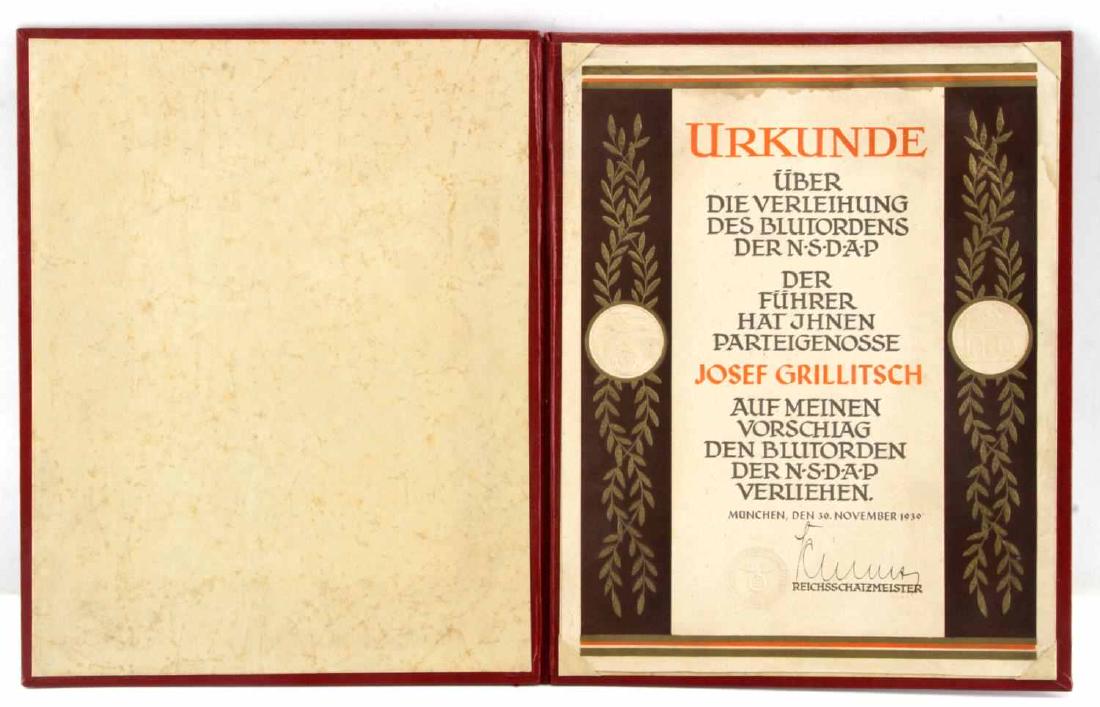 URKUNDE
ÜBER
DIE VERLEIHUNG
DES BLUTORDENS
DER N·S·D·A·P
DER
FÜHRER
HAT JHNEN
PARTEIGENOSSE
JOSEF GRILLITSCH
AUF MEINEN
VORSCHLAG
DEN BLUTORDEN
DER N·S·D·A·P
VERLIEHEN.
MÜNCHEN, DEN 30. NOVEMBER 1939
REICHSSCHATZMEISTER